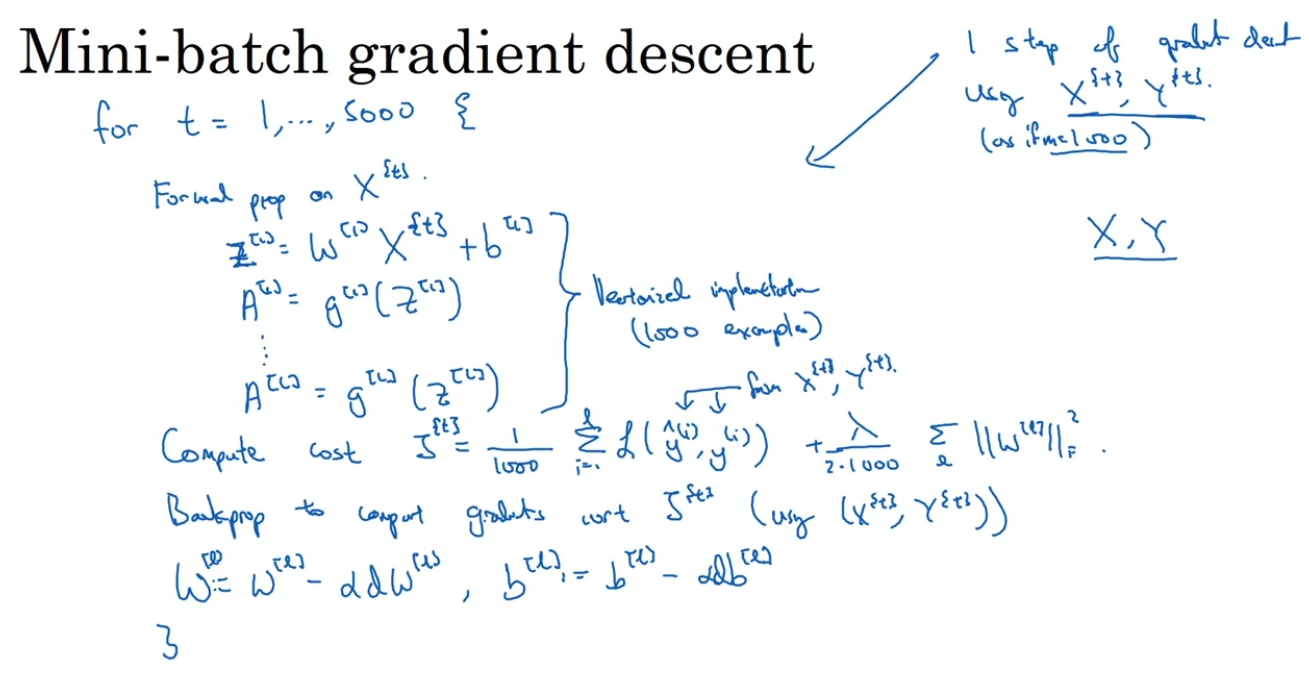 Mini-batch gradient descent
1 step of gradient descent
using X^{t}, Y^{t}.
(as if m=1000)
for t = 1,..., 5000 {
Forward prop on X^{t}.
X, Y
Z^[1] = W^[1] X^{t} + b^[1]
A^[1] = g^[1](Z^[1])
Vectorized implementation
(1000 examples)
⋮
A^[L] = g^[L](Z^[L])
from X^{t}, Y^{t}.
Compute cost J^{t} = 1/1000 Σ_{i=1}^{l} L(ŷ^(i), y^(i)) + λ/(2·1000) Σ_l ||W^[l]||_F^2.
Backprop to compute gradients wrt J^{t} (using (X^{t}, Y^{t}))
W^[l] := W^[l] - αdW^[l], b^[l] := b^[l] - αdb^[l]
}